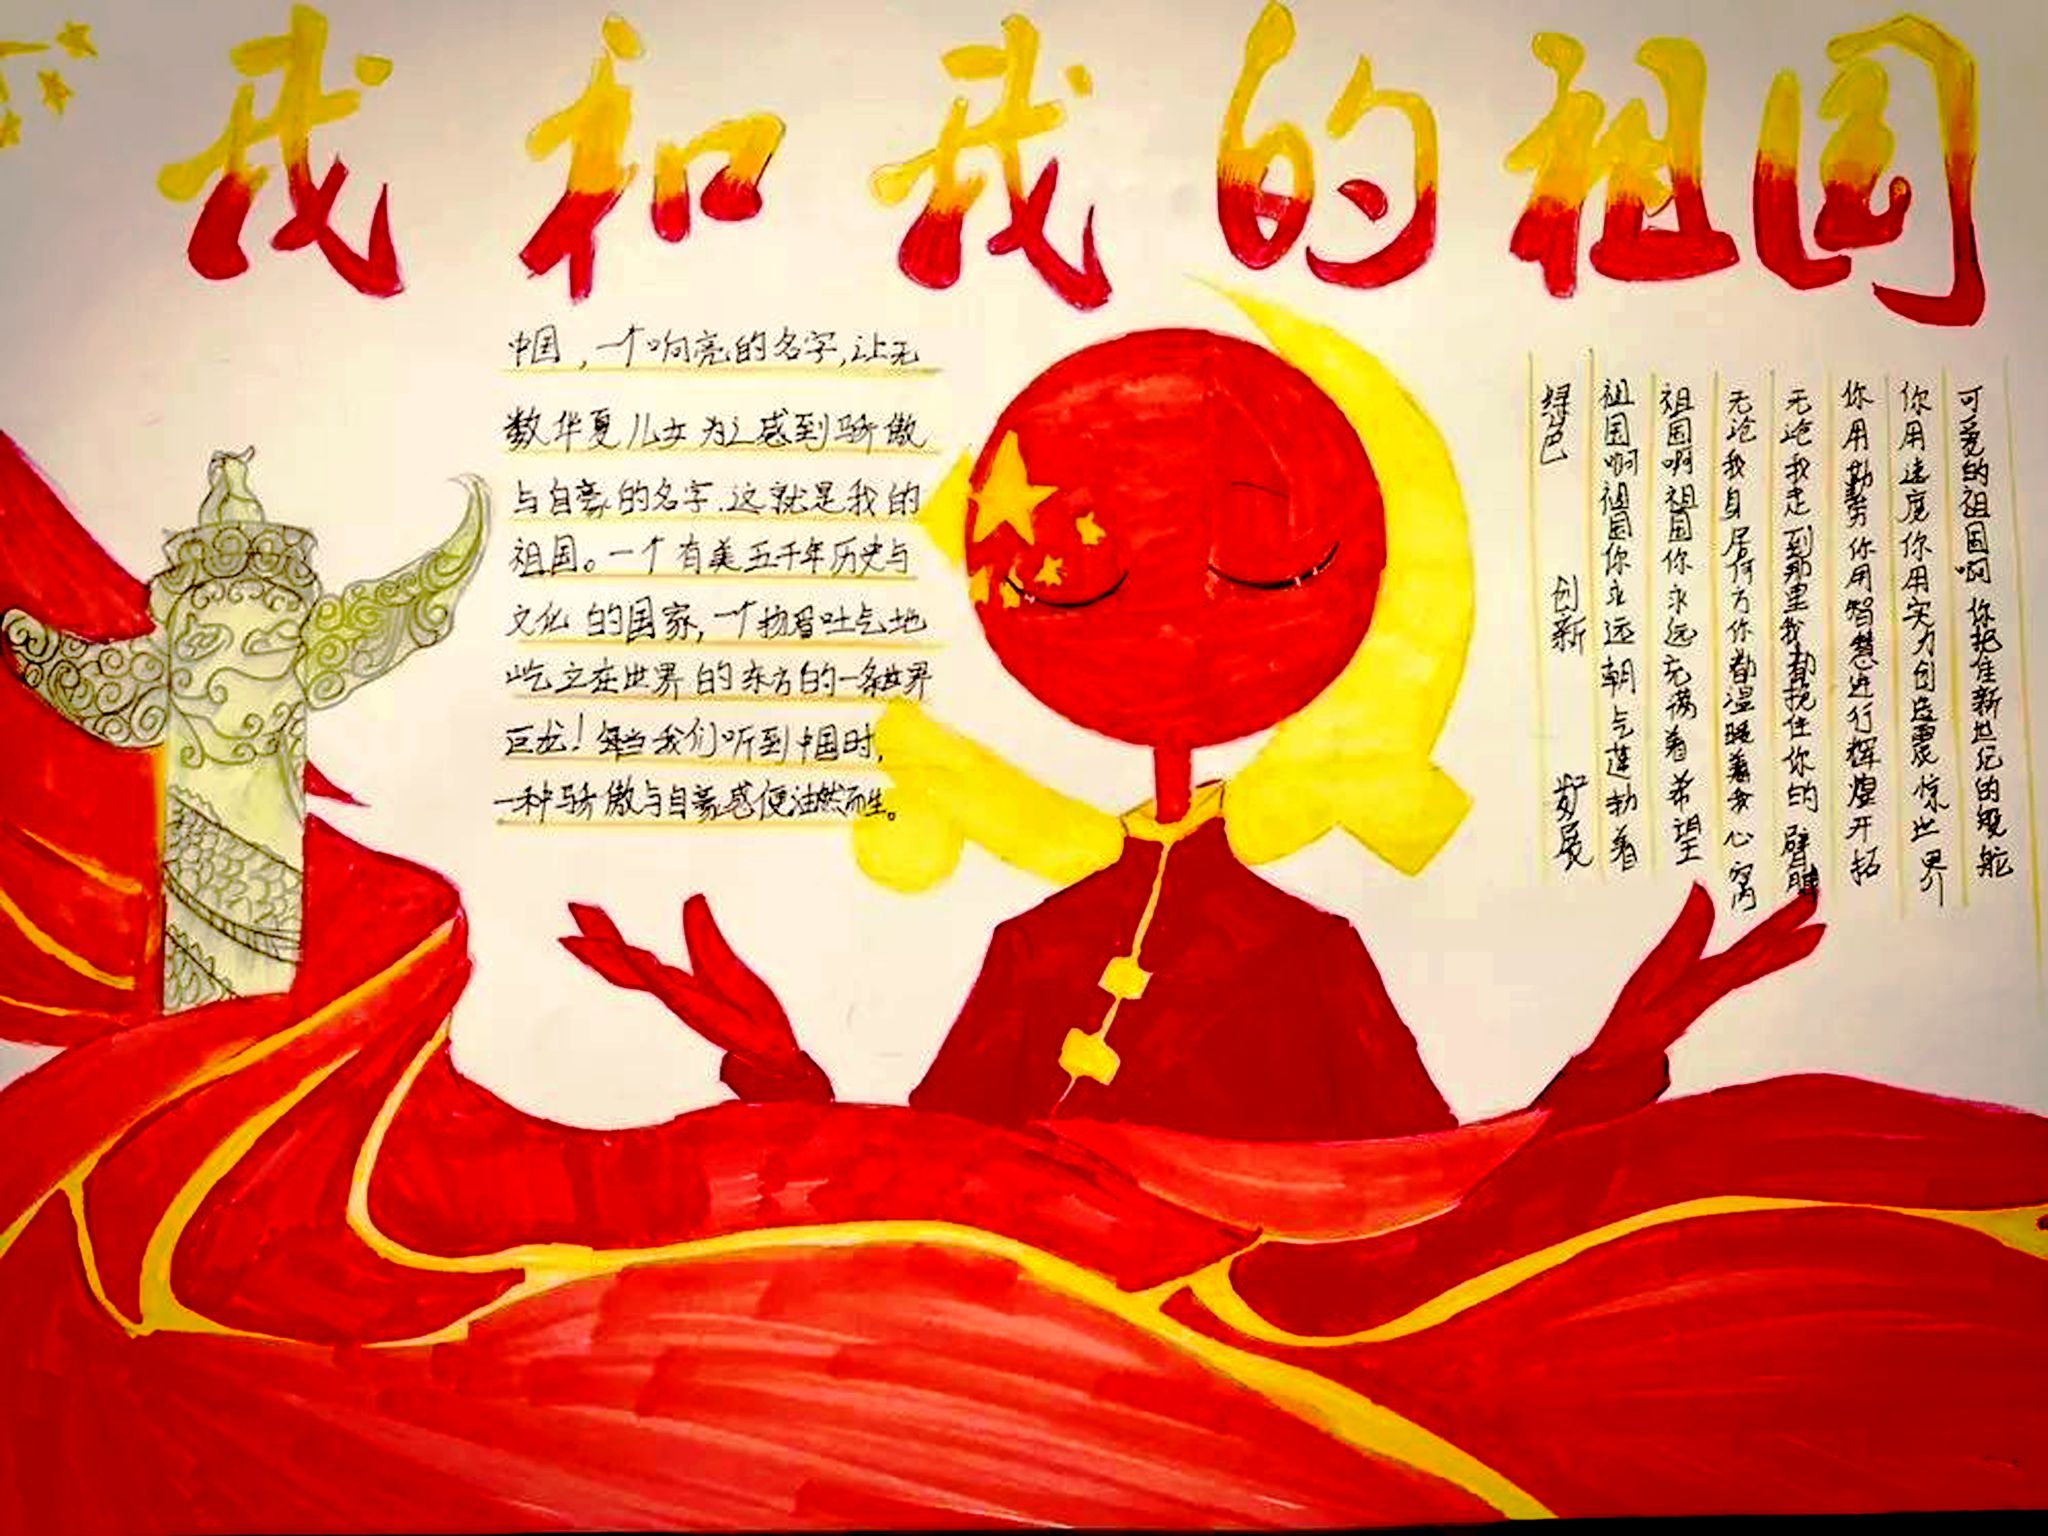 我和我的祖国
中国，一个响亮的名字，让无
数华夏儿女为之感到骄傲
与自豪的名字.这就是我的
祖国。一个有美五千年历史与
文化的国家，一个扬眉吐气地
屹立在世界的东方的一条世界
巨龙！每当我们听到中国时，
一种骄傲与自豪感便油然而生。
可爱的祖国啊 你把住新世纪的规舵
你用速度你用实力创造震惊世界
你用勤劳你用智慧进行辉煌开拓
无论我走到那里我都挽住你的臂膊
无论我身居何方你都温暖着我心窝
祖国啊祖国你永远充满着希望
祖国啊祖国你永远朝气蓬勃着
绿色 创新 发展